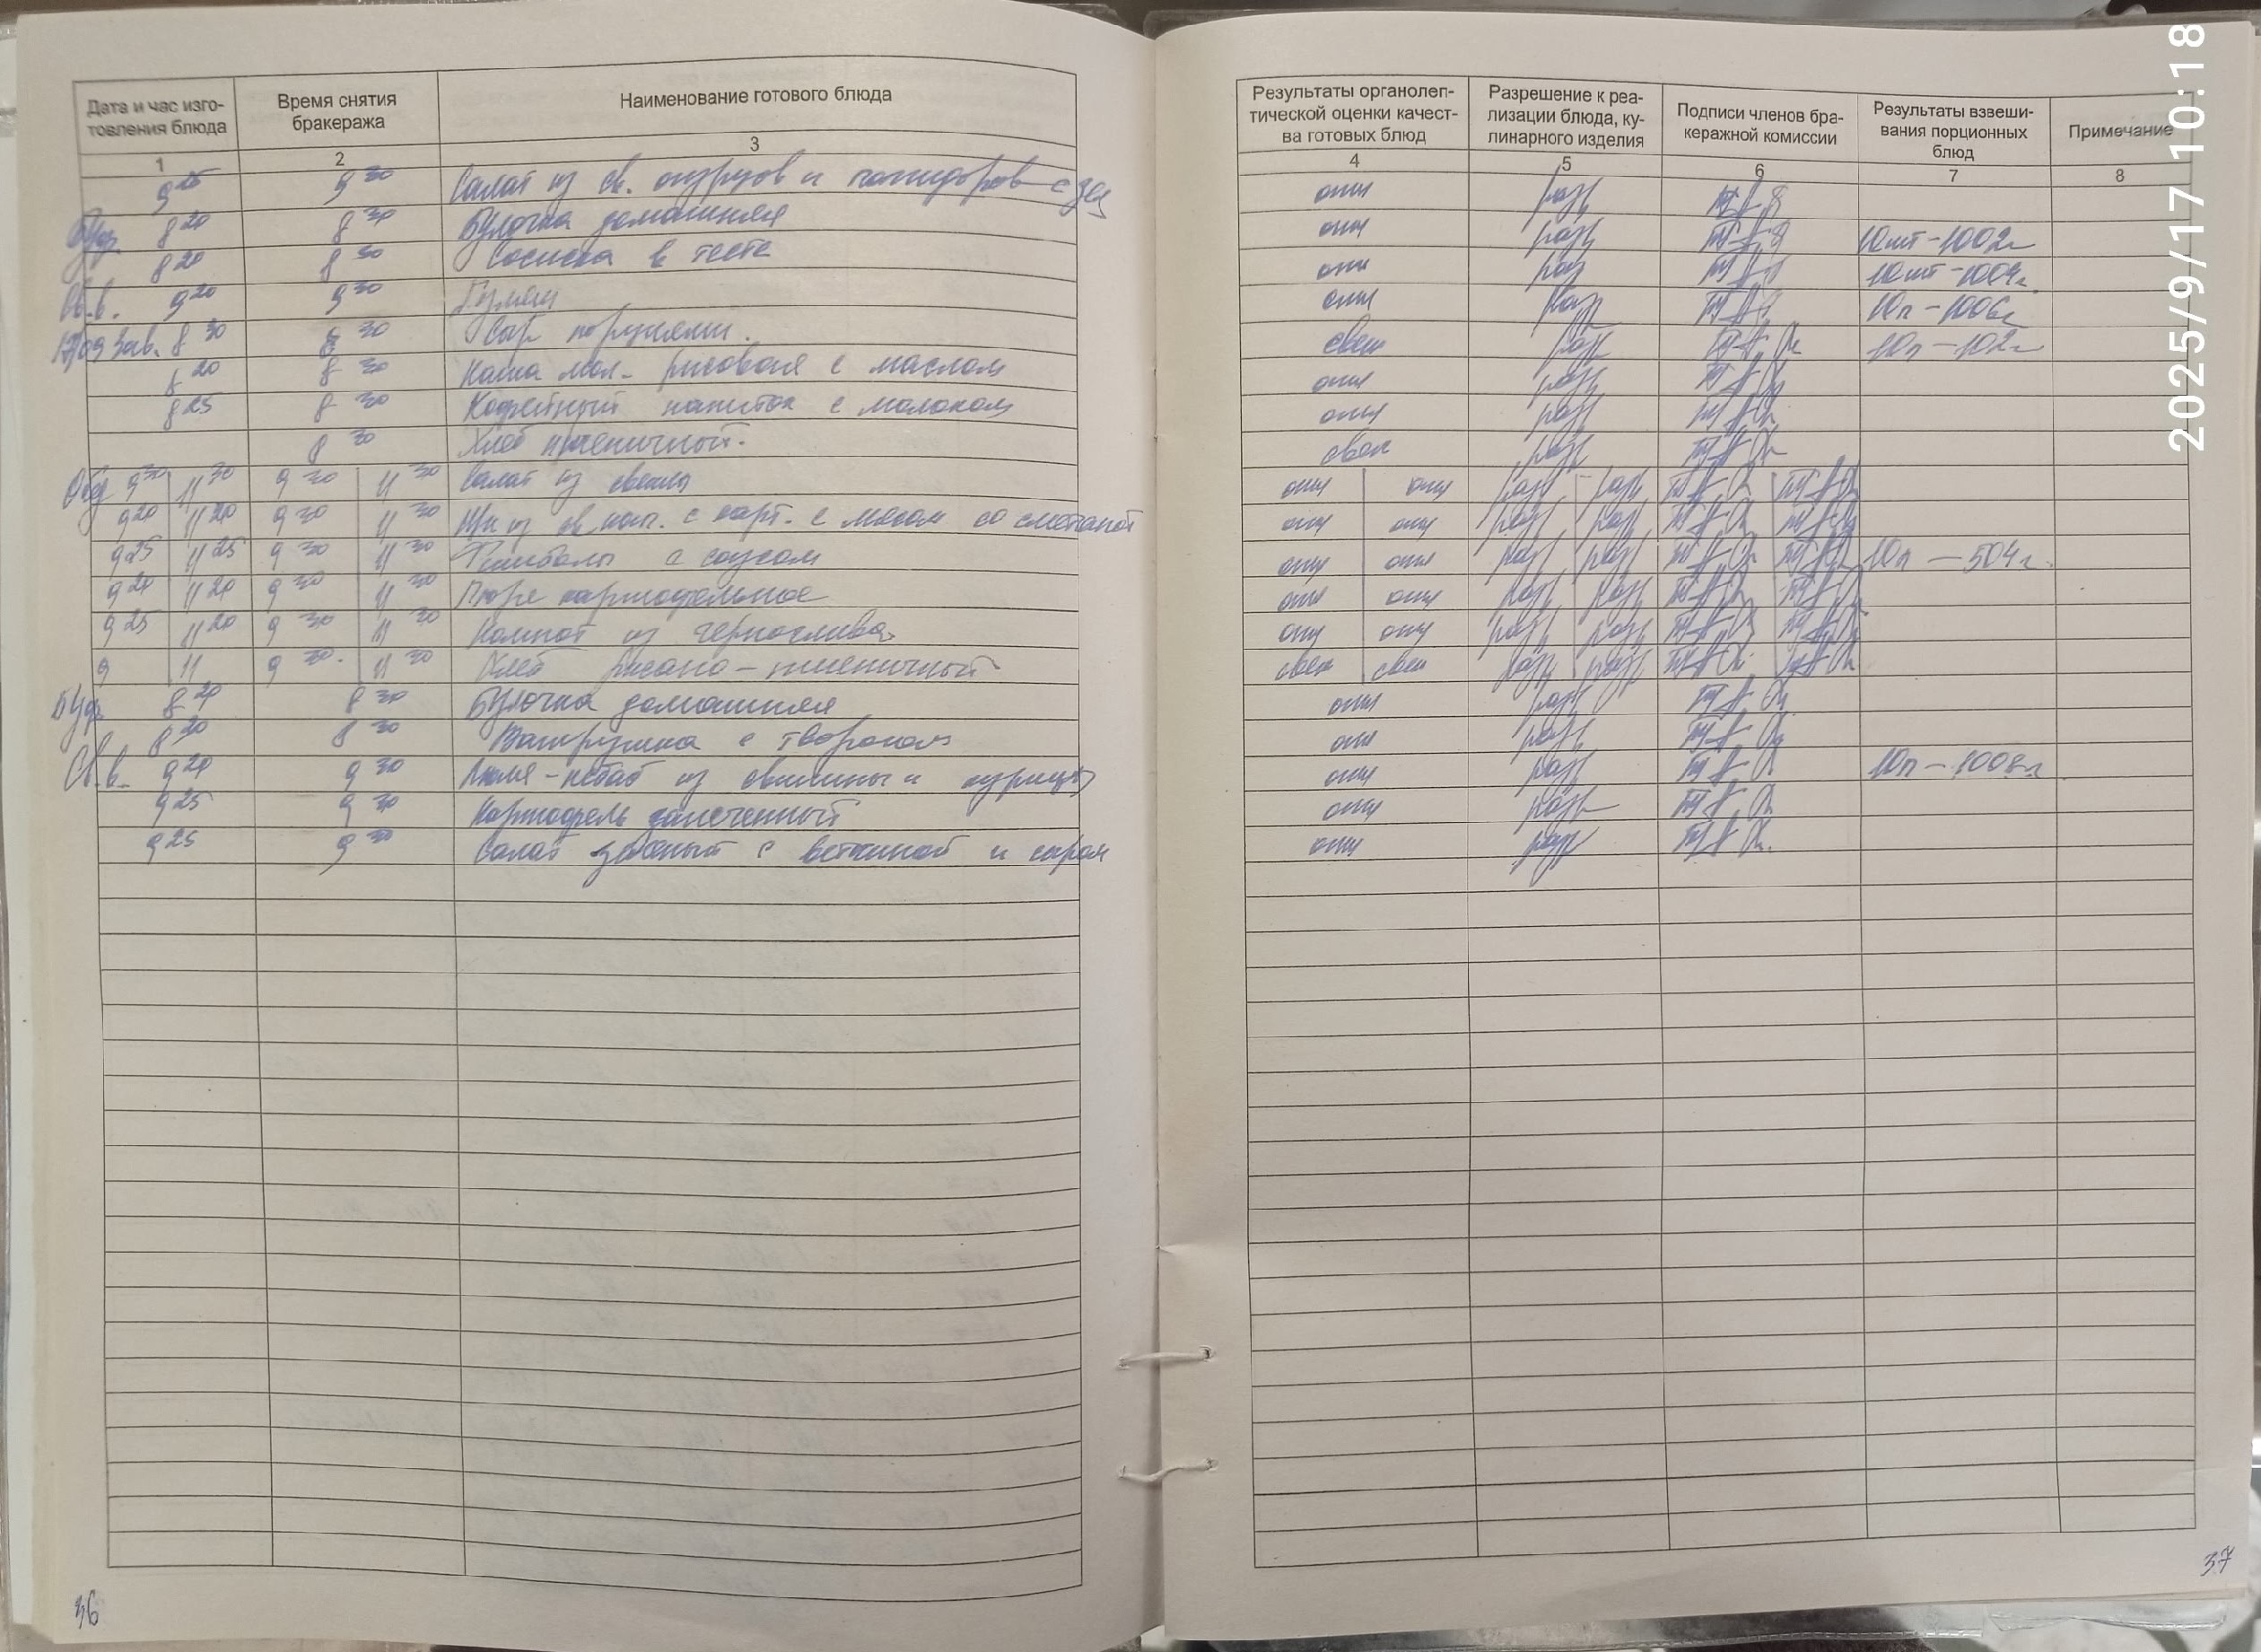 Дата и час изго-
товления блюда
Время снятия
бракеража
Наименование готового блюда
1
2
3
9 25 9 30 Салат из св. огурцов и помидоров с зел
Буф. 8 20 8 30 Булочка домашняя
8 20 8 30 Сосиска в тесте
Св.в. 9 20 9 30 Гуляш
17/09 Зав. 8 30 8 30 Сыр порциями.
8 20 8 30 Каша мол. рисовая с маслом
8 25 8 30 Кофейный напиток с молоком
8 30 Хлеб пшеничный.
Обед 9 30 11 30 9 30 11 30 Салат из свеклы
9 20 11 20 9 30 11 30 Щи из св. кап. с карт. с мясом со сметаной
9 25 11 25 9 30 11 30 с соусом
9 20 11 20 9 30 11 30 Пюре картофельное
9 25 11 20 9 30 11 30 Компот из чернослива.
9 11 9 30. 11 30 Хлеб ржано-пшеничный
Буф 8 20 8 30 Булочка домашняя
8 20 8 30 Ватрушка с творогом
Св.в. 9 20 9 30 Люля-кебаб из свинины и курицы
9 25 9 30 Картофель запеченный
9 25 9 30 Салат с ветчиной и сыром
36
Результаты органолеп-
тической оценки качест-
ва готовых блюд
Разрешение к реа-
лизации блюда, ку-
линарного изделия
Подписи членов бра-
керажной комиссии
Результаты взвеши-
вания порционных
блюд
Примечание
4
5
6
7
8
отл разр
отл разр 10шт-1002г
отл раз 10шт-1004г.
отл разр 10п-1006г
свеж разр 10п-102г
отл разр
отл разр
свеж разр
отл отл разр разр
отл отл разр разр
отл отл разр разр 10п-504г.
отл отл разр разр
отл отл разр разр
свеж свеж разр разр
отл разр
отл разр
отл разр 10п-1008г
отл разр
отл разр
37
2025/9/17 10:18